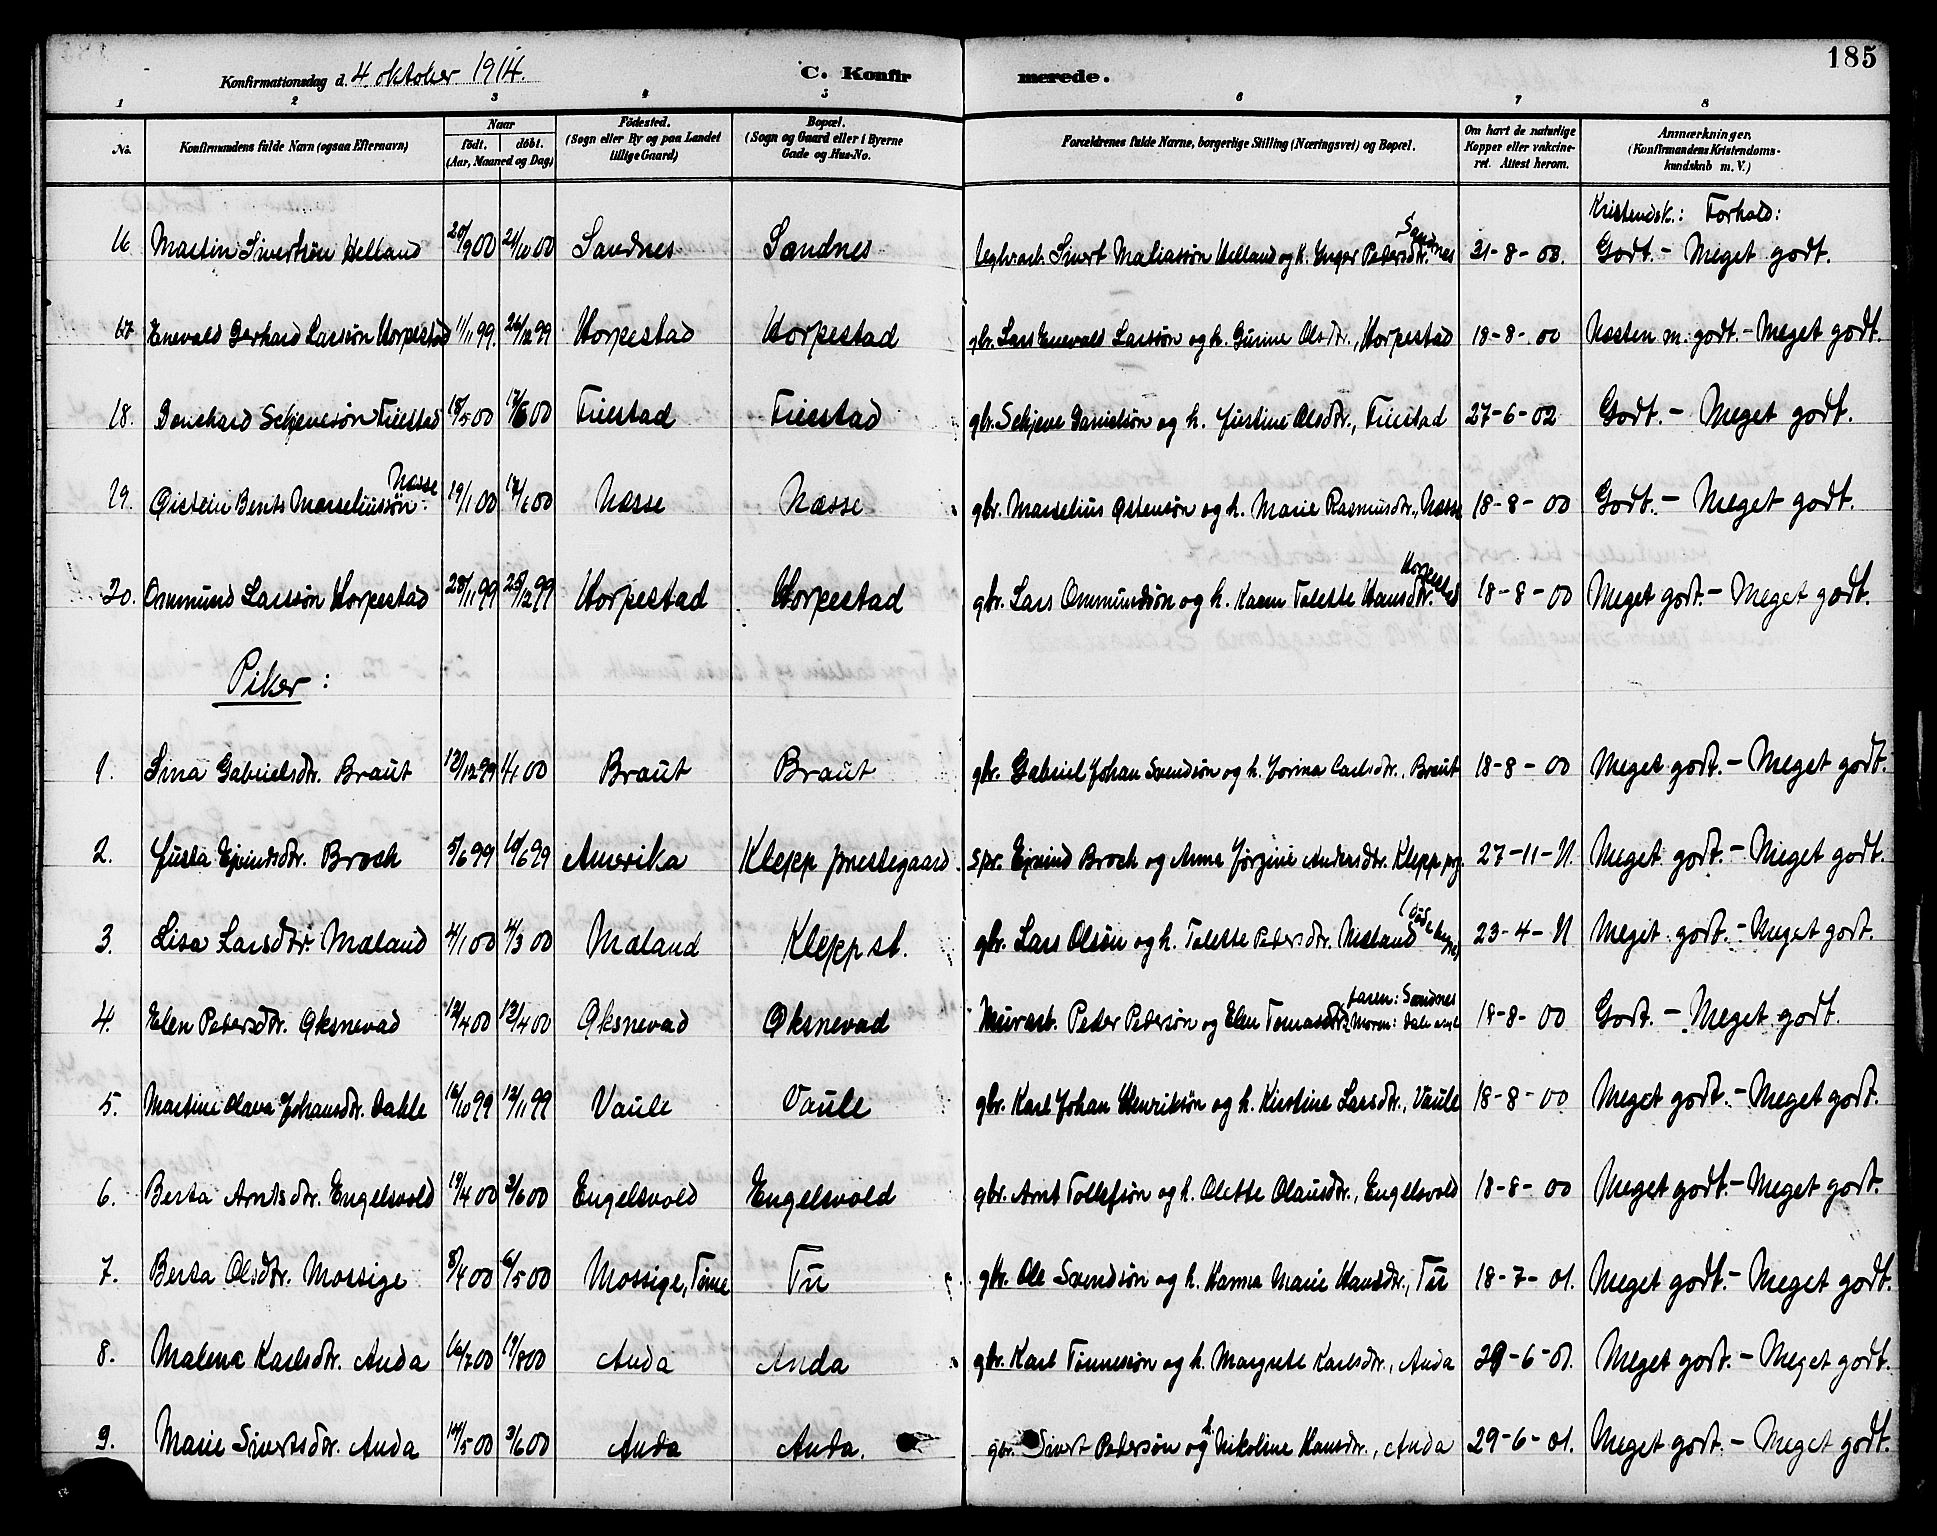 185
Konfirmationsdag d. 4. oktober 1914. C. Konfir merede.
1 2 3 4 5 6 7 8
No. Konfirmandens fulde Navn (ogsaa Efternavn) Naar født. døbt. (Aar, Maaned og Dag) Fødested. (Sogn eller By og paa Landet tillige Gaard) Bopæl. (Sogn og Gaard eller i Byerne Gade og Hus-No. Forældrenes fulde Navne, borgerlige Stilling (Næringsvei) og Bopæl. Om havt de naturlige Kopper eller vakcineret. Attest herom. Anmærkninger. (Konfirmandens Kristendomskundskab m. V.)
Kristendsk.: Forhold:
16 Martin Sivertsøn Helland 20/9 00 21/10 00 Sandnes Sandnes Sivert Matiassøn Helland og h. Inger Pedersdtr. Sandnes 31-8-00. Godt. - Meget godt.
17. Enevald Gerhard Larssøn Horpestad 11/11 99. 26/12 99 Horpestad Horpestad gbr. Lars Enevald Larssøn og h. Gunne Olsdtr., Horpestad 18-8-00 Næsten m. godt. - Meget godt.
18. Sekjevesøn Friestad 18/5 00 17/6 00 Friestad Friestad gbr. Sekjeve Danielsøn og h. Justine Olsdtr., Friestad 27-6-02 Godt. - Meget godt.
19. Øistein Berits Marseliussøn Næsse 19/1 00 Næsse Næsse gbr. Marselius Østensøn og h. Marie Rasmusdtr., Næsse 18-8-00 Godt. - Meget godt.
20. Ommund Larssøn Horpestad 28/11 99 25/12 99 Horpestad Horpestad gbr. Lars Ommundsøn og h. Karen Tolette Hansdtr. Horpestad 18-8-00 Meget godt. - Meget godt.
Piker:
1. Sina Gabrielsdtr. Braut 12/12 99 1/1 00 Braut Braut gbr. Gabriel Johan Svendsøn og h. Jorina Carlsdtr., Braut 18-8-00 Meget godt. - Meget godt.
2. Justa Ejvindsdtr. Broch 5/6 99 10/6 99 Amerika Klepp prestegaard. Ejvind Broch og Anna Jørgine Andersdtr. Klepp prg. 27-11-11. Meget godt. - Meget godt.
3. Lisa Larsdtr. Mæland 4/1 00 4/3 00 Mæland Klepp st. gbr. Lars Olsøn og h. Tolette Pedersdtr. Mæland 23-4-11 Meget godt. - Meget godt.
4. Elen Pedersdtr. Øksnevad 12/4 00 12/4 00 Øksnevad Øksnevad Murarb. Peder Pedersøn og Elen Tomasdtr. faren: Sandnes Moren: Dale asyl 18-8-00 Godt. - Meget godt.
5. Martine Olava Johansdtr. Dahle 16/10 99 12/11 99 Vaule Vaule gbr. Karl Johan Henriksøn og h. Kirstine Larsdtr., Vaule 18-8-00 Meget godt. - Meget godt.
6. Berta Arntsdtr. Engelsvold 19/4 00 3/6 00 Engelsvold Engelsvold gbr. Arnt Tollefsøn og h. Olette Olausdtr., Engelsvold 18-8-00 Meget godt. - Meget godt.
7. Berta Olsdtr. Mossige 8/4 00 6/5 00 Mossige, Time Tu gbr. Ole Svendsøn og h. Hanna Marie Hansdtr., Tu 18-7-01. Meget godt. - Meget godt.
8. Malena Karlsdtr. Anda 16/7 00 19/8 00 Anda Anda gbr. Karl Tønnessøn og h. Margrete Karlsdtr., Anda 29-6-01. Meget godt. - Meget godt.
9. Marie Sivertsdtr. Anda 14/5 00 3/6 00 Anda Anda. gbr. Sivert Pedersøn og h. Nikoline Hansdtr., Anda 29-6-01. Meget godt. - Meget godt.